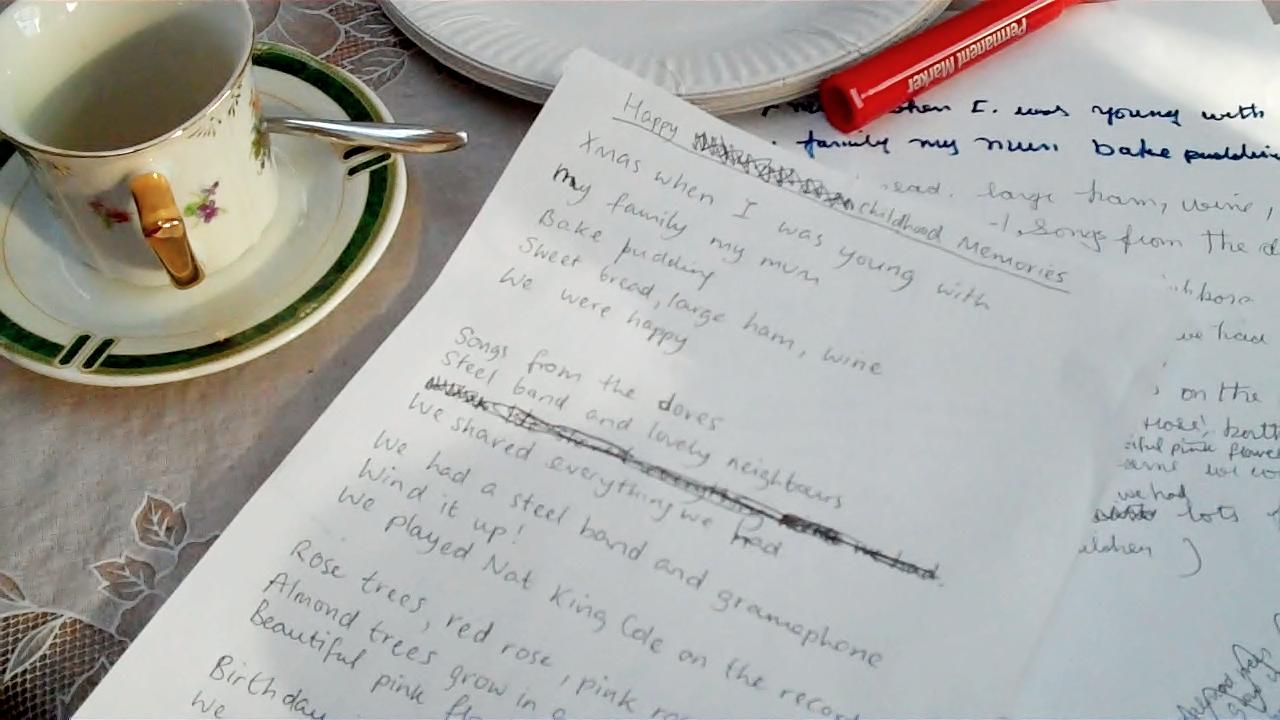 Happy childhood Memories
Xmas when I was young with
my family my mum
Bake pudding
Sweet bread, large ham, wine
We were happy
Songs from the doves
Steel band and lovely neighbours
We shared everything we had
We had a steel band and gramophone
Wind it up!
We played Nat King Cole on the record
Rose trees, red rose, pink
Almond trees grow in a
Beautiful pink
Birthday
We
Permanent Marker
when I. was young with
family my mum bake pudding
large ham, wine,
Songs from the
we had
on the
pink
we had
lots